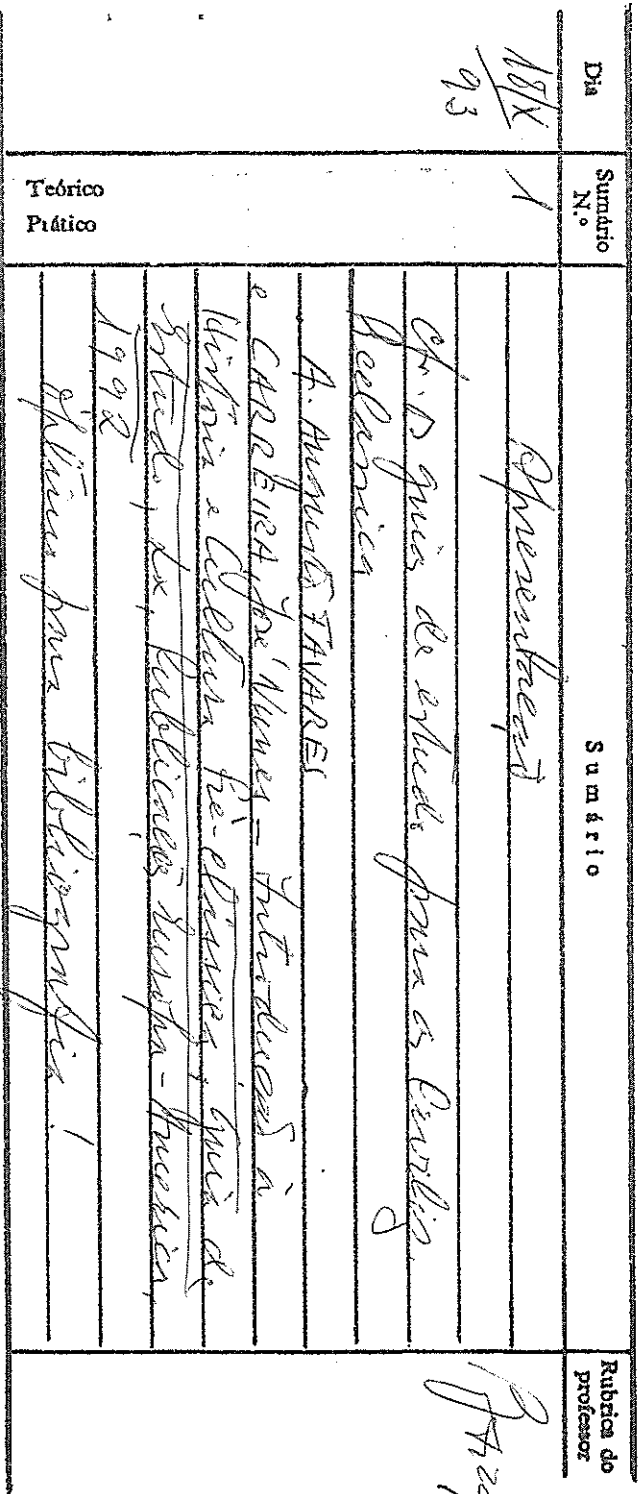 Dia
Sumário N.º
Sumário
Rubrica do professor
18/X
93
1
Teórico
Prático
Apresentação
Cf. guia de estudo para as Civiliz.
A. Augusto TAVARES
e CARREIRA, José Nunes – Introdução à
História e Cultura Pré-clássica, guia de
Estudo, Lx, Publicações Europa-América,
1992
para bibliografia!